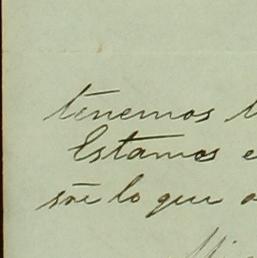 tenemos
Estamos e
sre lo que